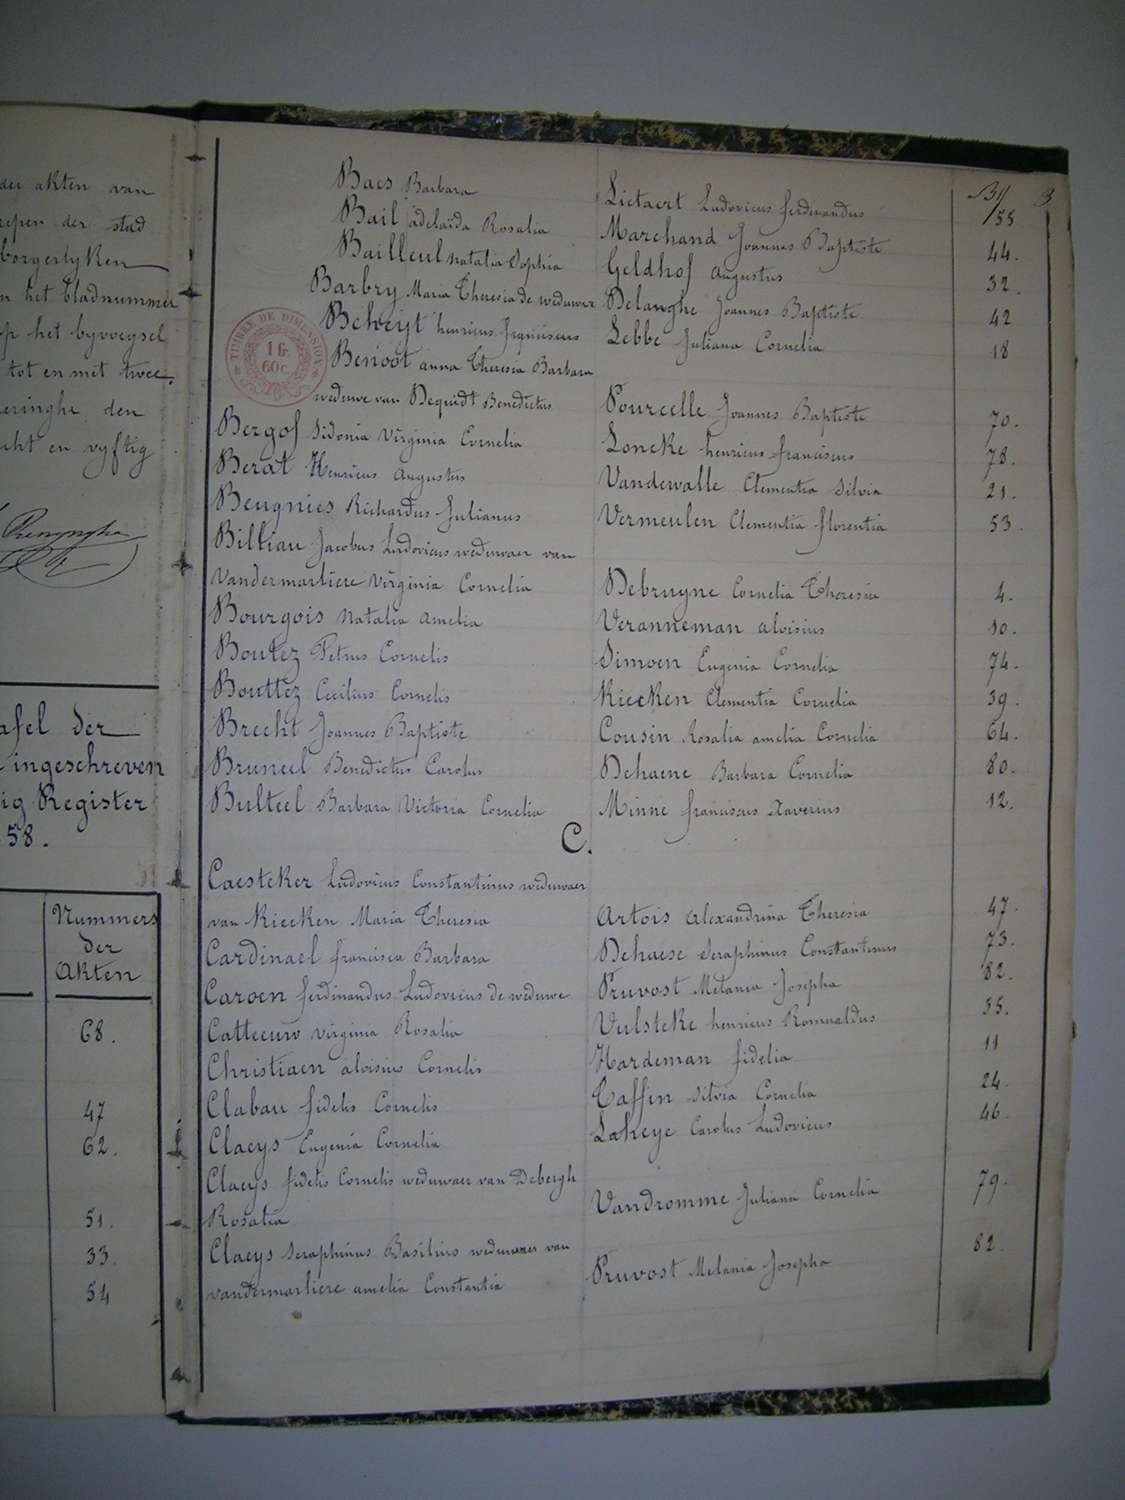 der akten van
repen der stad
borgerlyken
n het bladnummer
op het byvoegsel
tot en met twee.
eringhe, den
cht en vyftig
afel der
ingeschreven
ig Register
58.
Nummers
der
Akten
68.
47
62.
51.
33.
54
TIMBRE DE DIMENSION
1 fr.
60 c.
3
Baes Barbara Lietaert Ludovicus ferdinandus 55
Bail adelaïda Rosalia Marchand Joannes Baptiste 44.
Bailleul natalia Sophia Geldhof augustus 32.
Barbry Maria Theresia de weduwe Delanghe Joannes Baptiste 42
henricus franciscus Lebbe Juliana Cornelia 18
Benoot anna Theresia Barbara
weduwe van Dequidt Benedictus Pourcelle Joannes Baptiste 70.
Bergof Sidonia Virginia Cornelia Loncke henricus franciscus 78.
Berat Henricus augustus Vandewalle Clementia Silvia 21.
Beugnies Richardus Julianus Vermeulen Clementia florentia 53.
Billiau Jacobus Ludovicus weduwaer van
Vandermarliere Virginia Cornelia Debruyne Cornelia Theresia 4.
Bourgois natalia amelia Veranneman aloisius 10.
Boutez Petrus Cornelis Simoen Eugenia Cornelia 74.
Bouttez Cecilius Cornelis Kiecken Clementia Cornelia 39.
Brecht Joannes Baptiste Cousin Rosalia amelia Cornelia 64.
Bruneel Benedictus Carolus Dehaene Barbara Cornelia 80.
Bulteel Barbara Victoria Cornelia Minne franciscus Xaverius 12.
C.
Caesteker Ludovicus Constantinus weduwaer
van Kiecken Maria Theresia Artois alexandrina Theresia 47.
Cardinael francisca Barbara Dehaese Seraphinus Constantinus 73.
Caroen ferdinandus Ludovicus de weduwe Pruvost Melania Josepha 82.
Catteeuw virginia Rosalia Vulsteke henricus Romualdus 35.
Christiaen aloisius Cornelis Hardeman fidelia 11
Clabau fidelis Cornelis Taffin Silvia Cornelia 24.
Claeys Eugenia Cornelia Lakeye Carolus Ludovicus 46.
Claeys fidelis Cornelis weduwaer van Debergh
Rosalia Vandromme Juliana Cornelia 79.
Claeys Seraphinus Basilius weduwaer van
vandermarliere amelia Constantia Pruvost Melania Josepha 82.